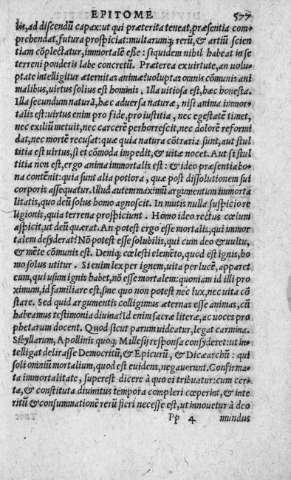 EPITOME 577
lis, ad discendū capax: ut qui præterita teneat, præsentia com
prehendat, futura prospiciat: multarumq; rerū, & artiū scien
tiam cōplectatur, immortalē esse: siquidem nihil habeat in se
terreni ponderis labe concretū. Præterea ex uirtute, an uolu
ptate intelligitur æternitas animæ: uoluptas omnib. cōmunis ani
malibus, uirtus solius est hominis, illa uitiosa est, hæc honesta.
Illa secundum naturā, hæc aduersa naturæ, nisi anima immor-
talis est: uirtus enim pro fide, pro iustitia, nec egestatē timet,
nec exiliū metuit, nec carcerē perhorrescit, nec dolorē reformi
dat, nec mortē recusat: quæ quia naturæ cōtraria sunt, aut stul
titia est uirtus, si et cōmoda impedit, & uitæ nocet. Aut si stul
titia non est, ergo anima immortalis est: & ideo præsentia bo-
na contēnit: quia sunt alia potiora, quæ post dissolutionem sui
corporis assequatur. Illud autem maximū argumentum immorta
litatis, quo deū solus homo agnoscit. In mutis nulla suspicio re
ligionis, quia terrena prospiciunt. Homo ideo rectus cœlum
aspicit, ut deū quærat. An potest ergo esse mortalis, qui immor
talem desyderat? Nō potest esse solubilis, qui cum deo & uultu,
& mēte cōmunis est. Deniq; cœlesti elemēto, quod est ignis, ho
mo solus utitur. Si enim lex per ignem, uita per lucē, apparet
eum, qui usum ignis habet, nō esse mortalem: quoniam id illi pro
ximum, id familiare est, sine quo non potest nec lux, nec uita cō
stare. Sed quid argumentis colligimus æternas esse animas, cū
habeamus testimonia diuina? Id enim sacræ literæ, ac uoces pro
phetarum docent. Quod si cui parum uideatur, legat carmina
Sibyllarum, Apollinis quoq; Milesij responsa consyderet: ut in
telligat delirasse Democritū, & Epicurū, & Dicæarchū: qui
soli omniū mortalium, quod est euidens, negauerunt. Confirma
ta immortalitate, superest dicere à quo ei tribuatur: cum cer-
ta, & constituta diuinitus tempora compleri cœperint, & inte
ritū & consummationē rerū fieri necesse est, ut innouetur à deo
Pp 4 mundus